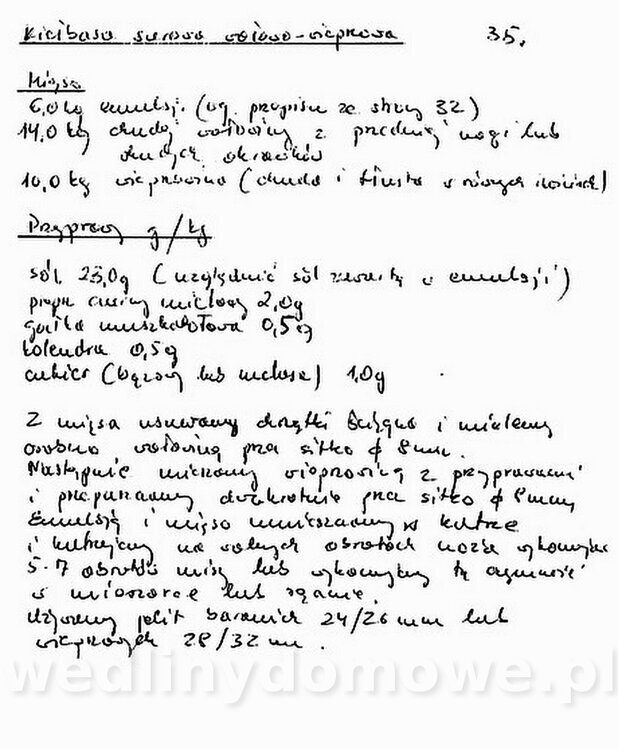 Kiełbasa surowa wołowo-wieprzowa 35.
Mięso
6,0 kg emulsji (wg. przepisu ze strony 32)
14,0 kg chudej wołowiny z przedniej nogi lub
chudych skrawków
10,0 kg wieprzowina (chuda i tłusta w równych ilościach)
Przyprawy g/kg
sól 23,0g (uwzględnić sól zawartą w emulsji)
pieprz czarny mielony 2,0g
gałka muszkatołowa 0,5g
kolendra 0,5g
cukier (brązowy lub melasa) 1,0g
Z mięsa usuwamy chrząstki ścięgna i mielemy
osobno, wołowinę przez sitko ϕ 8mm.
Następnie mieszamy wieprzowinę z przyprawami
i przepuszczamy dwukrotnie przez sitko ϕ 8mm
Emulsję i mięso umieszczamy w kutrze
i kutrujemy na wolnych obrotach noża wykonując
5-7 obrotów misy lub wykonujemy tę czynność
w mieszarce lub ręcznie.
Używamy jelit baranich 24/26 mm lub
wieprzowych 28/32 mm.
wedlinydomowe.pl